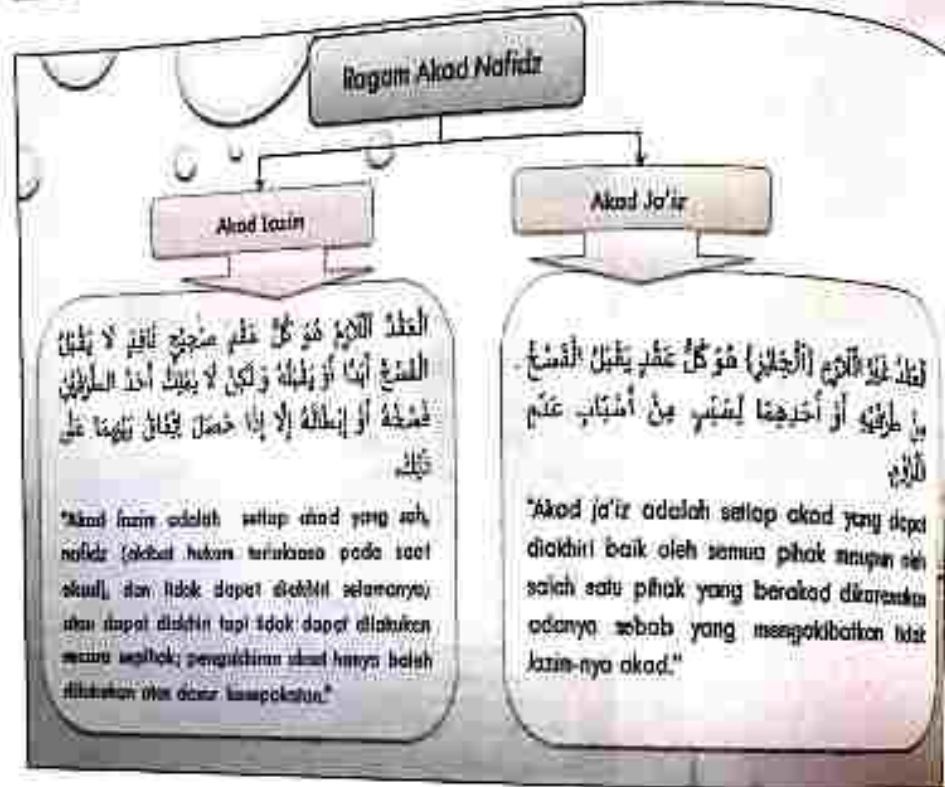 Ragam Akad Nafidz
Akad lazim
Akad Ja'iz
العَقْدُ اللَّازِمُ هُوَ كُلُّ عَقْدٍ صَحِيْحٍ نَافِذٍ لَا يَقْبَلُ
الْفَسْخَ أَبَدًا أَوْ يَقْبَلُهُ وَلَكِنْ لَا يَمْلِكُ أَحَدُ الطَّرَفَيْنِ
فَسْخَهُ أَوْ إِبْطَالَهُ إِلَّا إِذَا حَصَلَ اِتِّفَاقٌ بَيْنَهُمَا عَلَى
ذَلِكَ
"Akad lazim adalah setiap akad yang sah,
nafidz (akibat hukum terlaksana pada saat
akad), dan tidak dapat diakhiri selamanya;
atau dapat diakhiri tapi tidak dapat dilakukan
secara sepihak; pengakhiran akad hanya boleh
dilakukan atas dasar kesepakatan."
العَقْدُ غَيْرُ اللَّازِمِ (الْجَائِزِ) هُوَ كُلُّ عَقْدٍ يَقْبَلُ الْفَسْخَ
مِنْ طَرَفَيْهِ أَوْ أَحَدِهِمَا لِسَبَبٍ مِنْ أَسْبَابِ عَدَمِ
اللُّزُوْمِ
"Akad ja'iz adalah setiap akad yang dapat
diakhiri baik oleh semua pihak maupun oleh
salah satu pihak yang berakad dikarenakan
adanya sebab yang mengakibatkan tidak
lazim-nya akad."